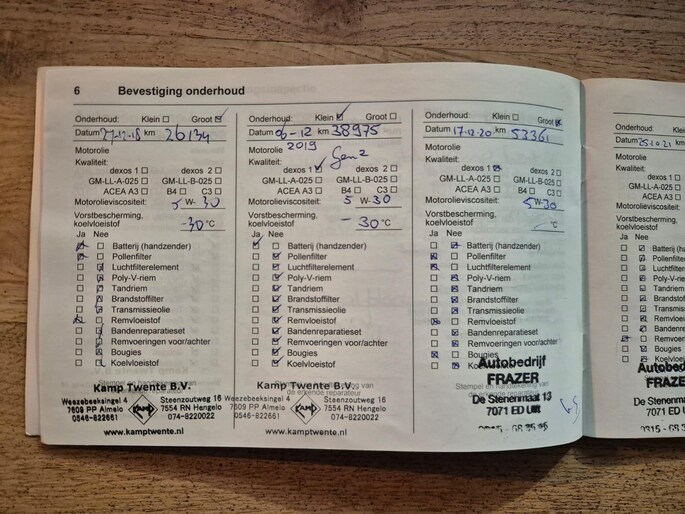 6 Bevestiging onderhoud
Onderhoud: Klein Groot
Datum 27-12-18 km 26134
Motorolie
Kwaliteit:
dexos 1 dexos 2
GM-LL-A-025 GM-LL-B-025
ACEA A3 B4 C3
Motorolieviscositeit: 5 W- 30
Vorstbescherming,
koelvloeistof -30 °C
Ja Nee
Batterij (handzender)
Pollenfilter
Luchtfilterelement
Poly-V-riem
Tandriem
Brandstoffilter
Transmissieolie
Remvloeistof
Bandenreparatieset
Remvoeringen voor/achter
Bougies
Koelvloeistof
Kamp Twente B.V.
Weezebeeksingel 4 Steenzoutweg 16
7609 PP Almelo 7554 RN Hengelo
0546-822661 074-8220022
KAMP
www.kamptwente.nl
Onderhoud: Klein Groot
Datum 06-12 km 38975
2019
Motorolie
Kwaliteit: Gen2
dexos 1 dexos 2
GM-LL-A-025 GM-LL-B-025
ACEA A3 B4 C3
Motorolieviscositeit: 5 W-30
Vorstbescherming,
koelvloeistof - 30 °C
Ja Nee
Batterij (handzender)
Pollenfilter
Luchtfilterelement
Poly-V-riem
Tandriem
Brandstoffilter
Transmissieolie
Remvloeistof
Bandenreparatieset
Remvoeringen voor/achter
Bougies
Koelvloeistof
Kamp Twente B.V.
Weezebeeksingel 4 Steenzoutweg 16
7609 PP Almelo 7554 RN Hengelo
0546-822661 074-8220022
KAMP
www.kamptwente.nl
Onderhoud: Klein Groot
Datum 17-12-20 km 53361
Motorolie
Kwaliteit:
dexos 1 dexos 2
GM-LL-A-025 GM-LL-B-025
ACEA A3 B4 C3
Motorolieviscositeit: 5W-30
Vorstbescherming,
koelvloeistof °C
Ja Nee
Batterij (handzender)
Pollenfilter
Luchtfilterelement
Poly-V-riem
Tandriem
Brandstoffilter
Transmissieolie
Remvloeistof
Bandenreparatieset
Remvoeringen voor/achter
Bougies
Koelvloeistof
Stempel en handtekening van
de erkende reparateur
Autobedrijf
FRAZER
De Stenenmaat 13
7071 ED Ulft
Onderhoud:
Datum 25-10-21 km
Motorolie
Kwaliteit:
GM-LL-A
A
Motorolievis
Vorstbesche
koelvloeistof
Ja Nee
Batt
Polle
Luch
Poly
Tand
Bran
Tran
Rem
Band
Rem
Bou
Autobedrijf
FRAZER
De Stenenm
7071 ED